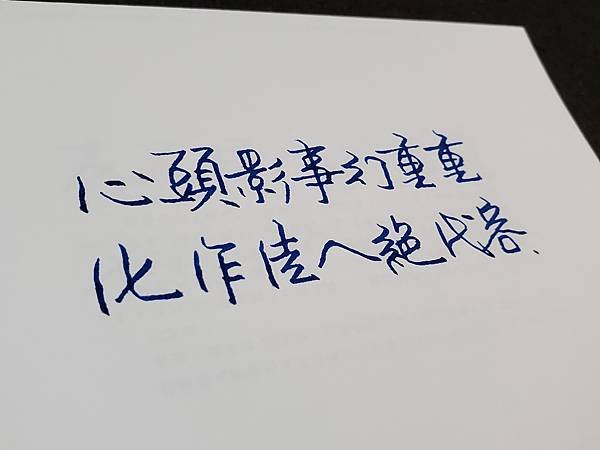 心頭影事幻重重
化作佳人絕代容